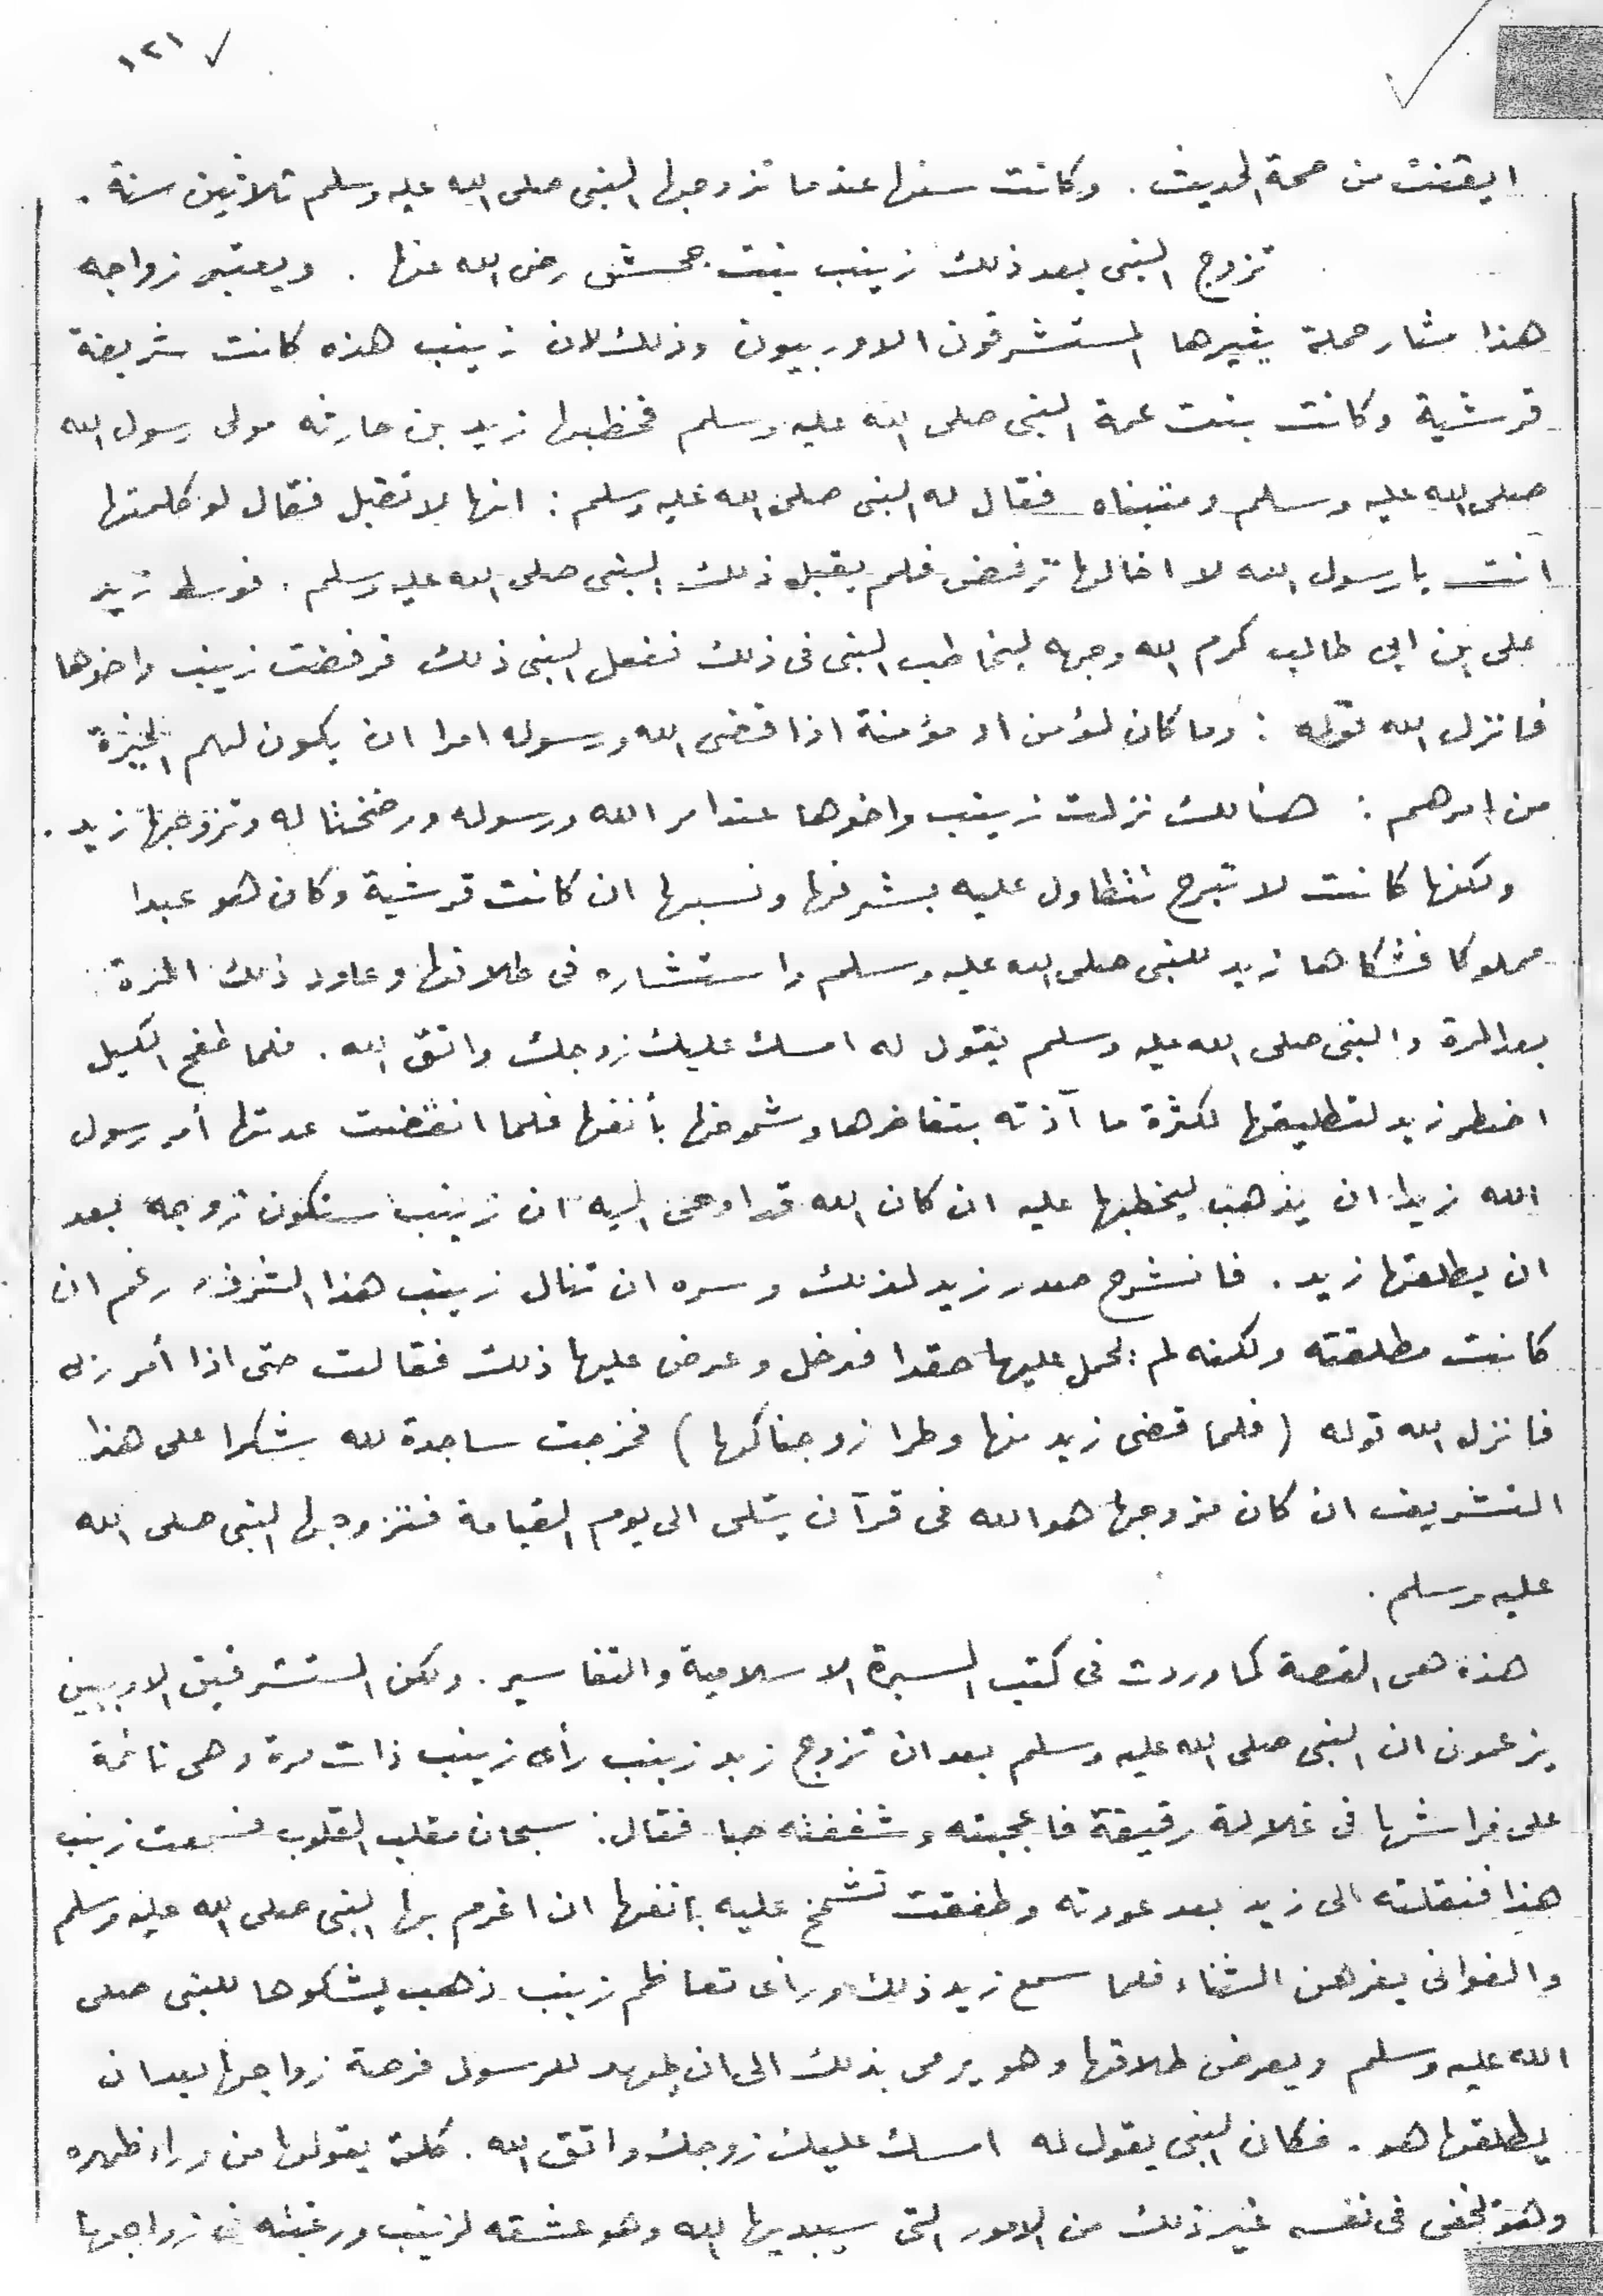 ١٢١
ايقنت من صحة الحديث . وكانت سنها عندما تزوجها النبى صلى الله عليه وسلم ثلاثين سنة .
تزوج النبى بعد ذلك زينب بنت جحش رضى الله عنها . ويعتبر زواجه
هذا مثار حملة يثيرها المستشرقون الاوربيون وذلك لان زينب هذه كانت شريفة
قرشية وكانت بنت عمة النبى صلى الله عليه وسلم فخطبها زيد بن حارثه مولى رسول الله
صلى الله عليه وسلم ومتبناه فقال له النبى صلى الله عليه وسلم : انها لا تقبل فقال لو كلمتها
أنت يا رسول الله لا اخالها ترفض فلم يقبل ذلك النبى صلى الله عليه وسلم . فوسط زيد
على بن ابى طالب كرم الله وجهه ليخاطب النبى فى ذلك ففعل النبى ذلك فرفضت زينب واخوها
فانزل الله قوله : وما كان لمؤمن او مؤمنة اذا قضى الله ورسوله امرا ان يكون لهم الخيرة
من امرهم : هنالك نزلت زينب واخوها عند امر الله ورسوله ورضخنا له وتزوجها زيد .
ولكنها كانت لا تبرح تتطاول عليه بشرفها ونسبها ان كانت قرشية وكان هو عبدا
مملوكا فشكاها زيد للنبى صلى الله عليه وسلم واستشاره فى طلاقها وعاود ذلك المرة
بعد المرة والنبى صلى الله عليه وسلم يقول له امسك عليك زوجك واتق الله . فلما طفح الكيل
اضطر زيد لتطليقها لكثرة ما آذته بتفاخرها وشموخها بأنفها فلما انقضت عدتها أمر رسول
الله زيدا ان يذهب ليخطبها عليه ان كان الله قد اوحى اليه ان زينب ستكون زوجه بعد
ان يطلقها زيد . فانشرح صدر زيد لذلك وسره ان تنال زينب هذا الشرف رغم ان
كانت مطلقته ولكنه لم يحمل عليها حقدا فدخل وعرض عليها ذلك فقالت حتى اذا أمر ربى
فانزل الله قوله ( فلما قضى زيد منها وطرا زوجناكها ) فخرجت ساجدة لله شكرا على هذا
التشريف ان كان مزوجها هو الله فى قرآن يتلى الى يوم القيامة فتزوجها النبى صلى الله
عليه وسلم .
هذه هى القصة كما وردت فى كتب السيرة الاسلامية والتفاسير . ولكن المستشرقين الاوربيين
يزعمون ان النبى صلى الله عليه وسلم بعد ان تزوج زيد زينب رأى زينب ذات مرة وهى نائمة
على فراشها فى غلالة رقيقة فاعجبته وشغفته حبا فقال : سبحان مقلب القلوب فسمعت زينب
هذا فنقلته الى زيد بعد عودته وطفقت تشمخ عليه بانفها ان اغرم بها النبى صلى الله عليه وسلم
والغوانى يغرهن الثناء فلما سمع زيد ذلك ورأى تعاظم زينب ذهب يشكوها للنبى صلى
الله عليه وسلم ويعرض طلاقها وهو يرمى بذلك الى ان يمهد للرسول فرصة زواجها بعد ان
يطلقها هو . فكان النبى يقول له امسك عليك زوجك واتق الله . كلمة يقولها من وراء ظهره
وهو يخفى فى نفسه غير ذلك من الامور التى سيبديها الله وهو عشقه لزينب ورغبته فى زواجها